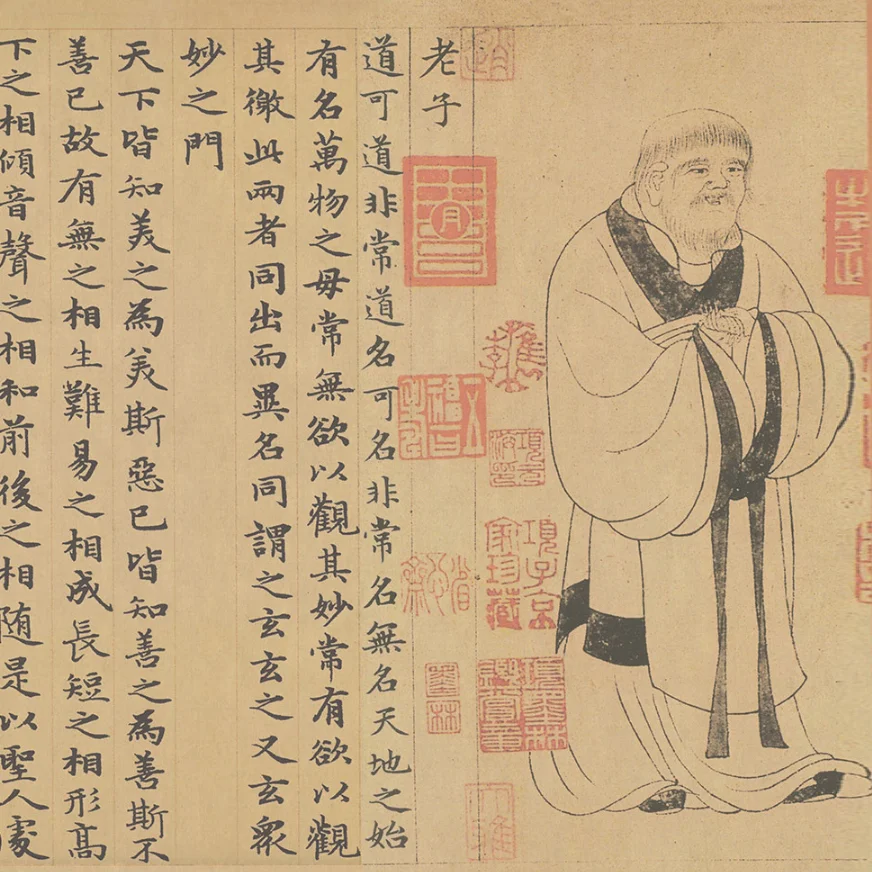 老子
道可道非常道名可名非常名無名天地之始
有名萬物之母常無欲以觀其妙常有欲以觀
其徼此兩者同出而異名同謂之玄玄之又玄衆
妙之門
天下皆知美之為美斯惡已皆知善之為善斯不
善已故有無之相生難易之相成長短之相形高
下之相傾音聲之相和前後之相随是以聖人處
項子京
家珍藏
項墨林
鑑賞章
墨林